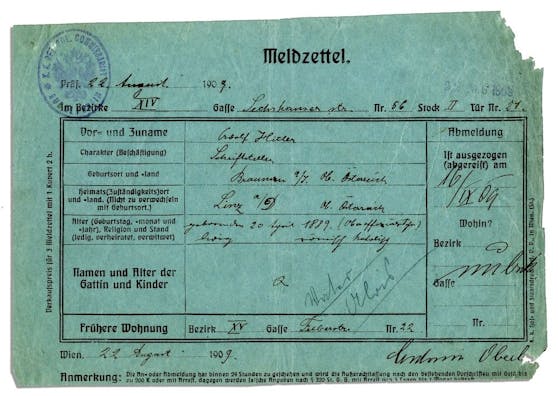 Meldzettel.
Präs. 22 August 1909.
Im Bezirke XIV Gasse Sechshauser str. Nr. 56 Stock II Tür Nr. 21.
Vor- und Zuname Adolf Hitler
Charakter (Beschäftigung) Schriftsteller
Geburtsort und -land Braunau a/I. Ob. Österreich
Heimats(Zuständigkeits)ort und -land. (Nicht zu verwechseln mit Geburtsort.) Linz Ob. Österreich
Alter (Geburtstag, -monat und -jahr), Religion und Stand (ledig, verheiratet, verwitwet) geboren den 20 April 1889.
ledig römisch katholisch
Namen und Alter der Gattin und Kinder
Vater Alois
Frühere Wohnung Bezirk XV Gasse Felberstr. Nr. 22
Abmeldung
Ist ausgezogen (abgereist) am
16/IX 09
Wohin?
Bezirk
Gasse
Nr.
Wien, 22 August 1909.
Anmerkung: Die An- oder Abmeldung hat binnen 24 Stunden zu geschehen und wird die Außerachtlassung nach den bestehenden Vorschriften mit Geld bis
zu 200 K oder mit Arrest, dagegen werden falsche Angaben nach § 320 St. G. B. mit Arrest
Verkaufspreis für 3 Meldzettel mit 1 Kuvert 2 h.